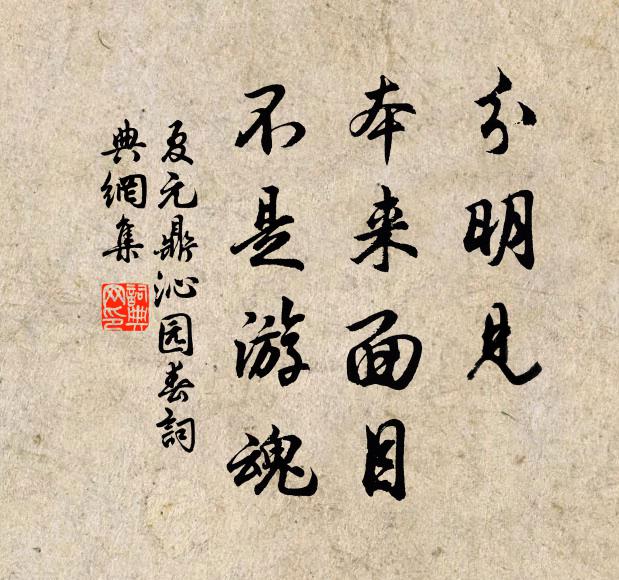 分明见
本来面目
不是游魂
夏元鼎沁园春詞
典網集
詞典網印